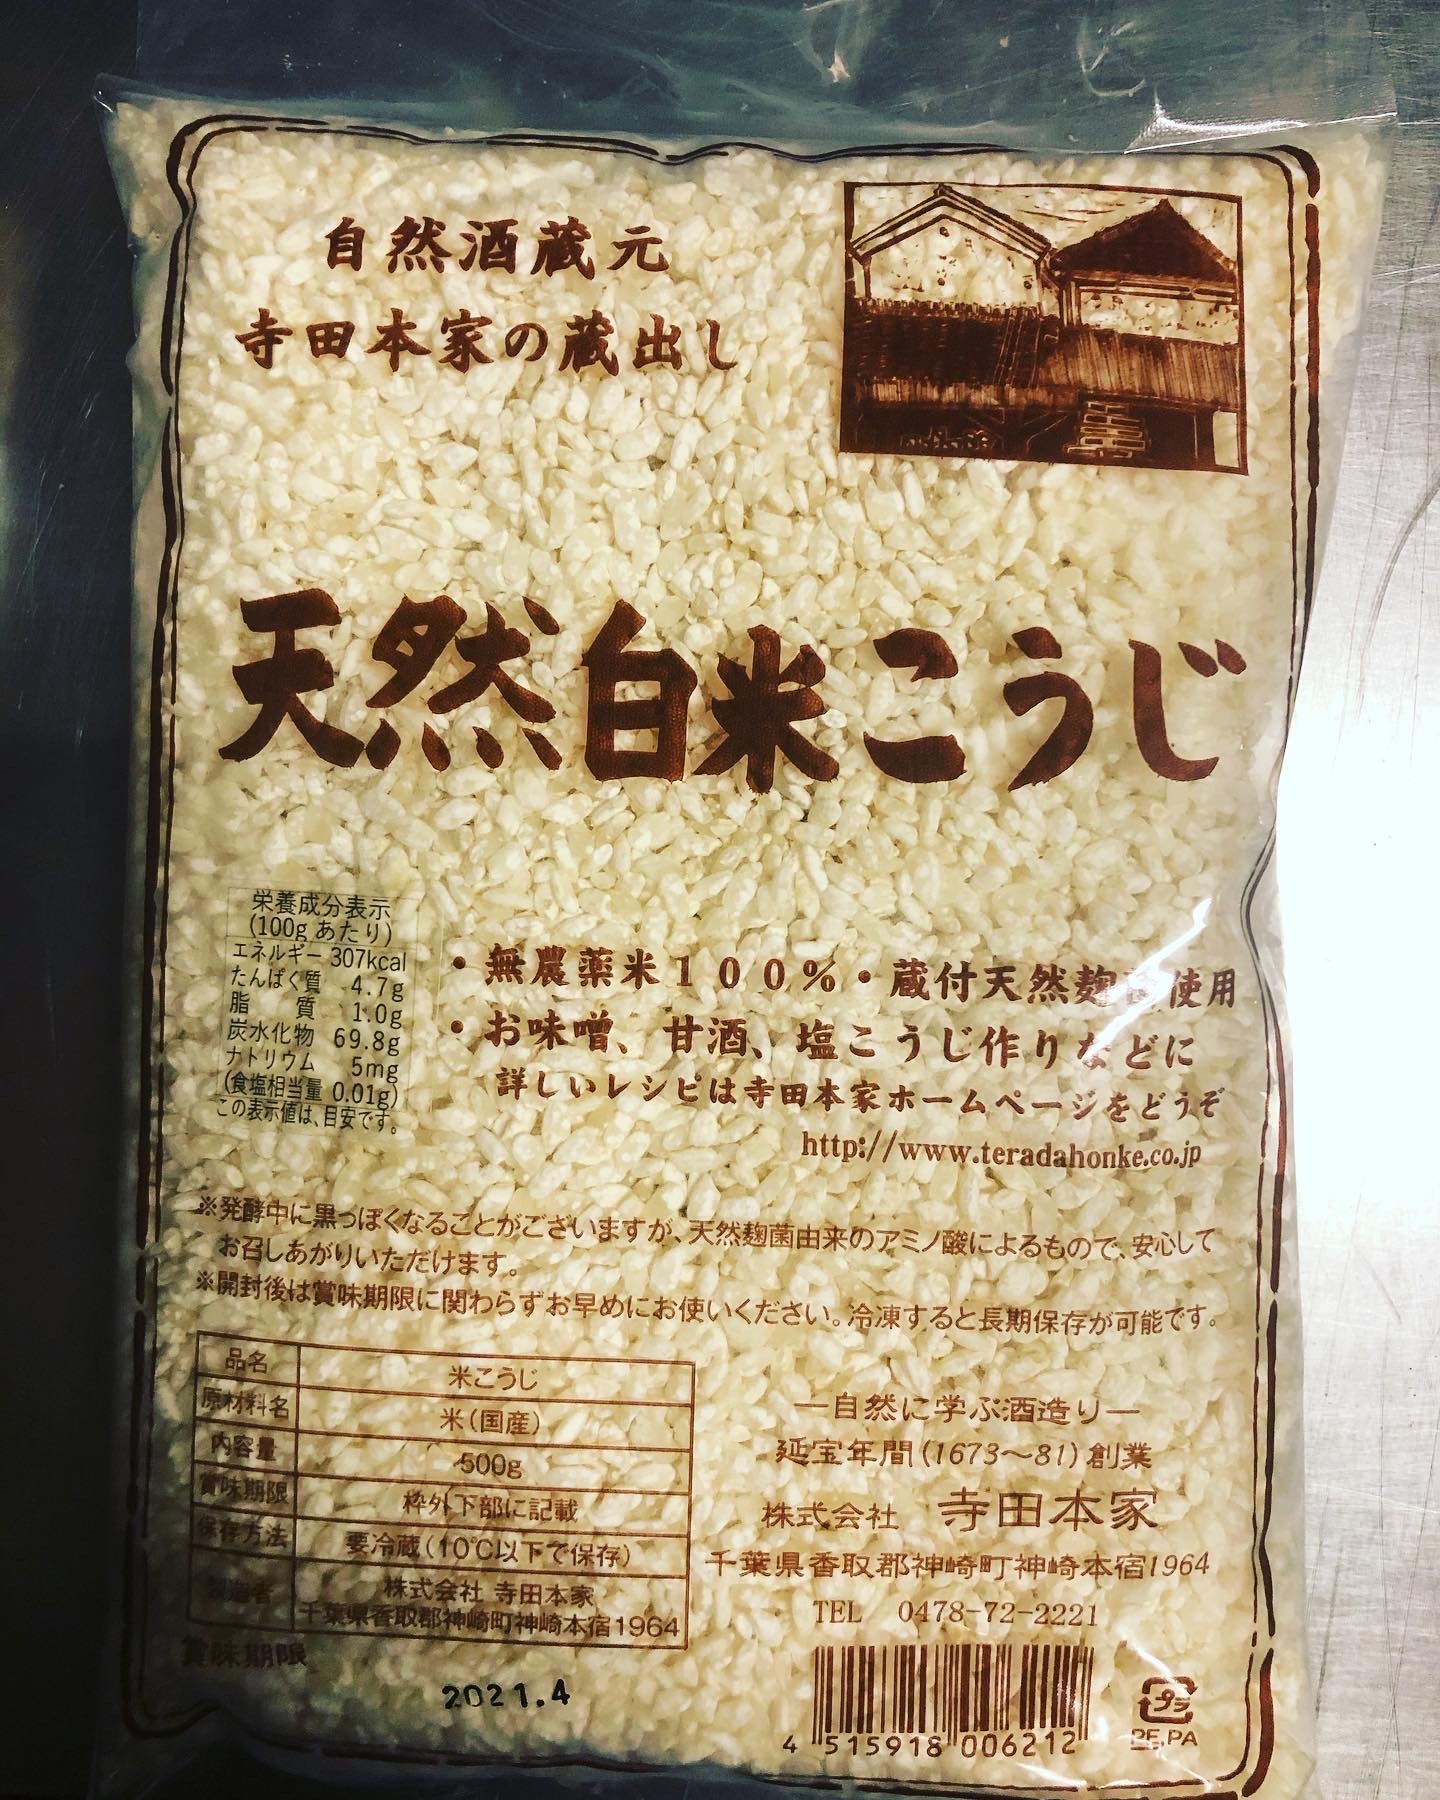 自然酒蔵元
寺田本家の蔵出し
天然白米こうじ
栄養成分表示
(100gあたり)
エネルギー 307kcal
たんぱく質 4.7g
脂質 1.0g
炭水化物 69.8g
ナトリウム 5mg
(食塩相当量 0.01g)
この表示値は、目安です。
・無農薬米100%・蔵付天然麹菌使用
・お味噌、甘酒、塩こうじ作りなどに
詳しいレシピは寺田本家ホームページをどうぞ
http://www.teradahonke.co.jp
※発酵中に黒っぽくなることがございますが、天然麹菌由来のアミノ酸によるもので、安心して
お召しあがりいただけます。
※開封後は賞味期限に関わらずお早めにお使いください。冷凍すると長期保存が可能です。
品名 米こうじ
原材料名 米(国産)
内容量 500g
賞味期限 枠外下部に記載
保存方法 要冷蔵(10℃以下で保存)
製造者 株式会社 寺田本家
千葉県香取郡神崎町神崎本宿1964
賞味期限
2021.4
―自然に学ぶ酒造り―
延宝年間(1673〜81)創業
株式会社 寺田本家
千葉県香取郡神崎町神崎本宿1964
TEL 0478-72-2221
4 515918 006212
プラ
PE,PA